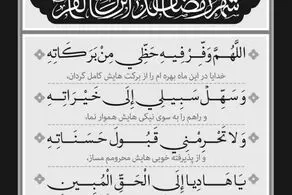 شهر رمضان الذی انزل فیه القرآن
اللَّهُمَّ وَفِّرْ فِيهِ حَظِّي مِنْ بَرَكَاتِهِ
خدایا در این ماه بهره ام را از برکت هایش کامل گردان،
وَسَهِّلْ سَبِيلِي إِلَى خَيْرَاتِهِ
و راهم را به سوی نیکی هایش هموار نما،
وَلَا تَحْرِمْنِي قَبُولَ حَسَنَاتِهِ
و از پذیرفته خوبی هایش محرومم مساز،
يَا هَادِيًا إِلَى الْحَقِّ الْمُبِينِ